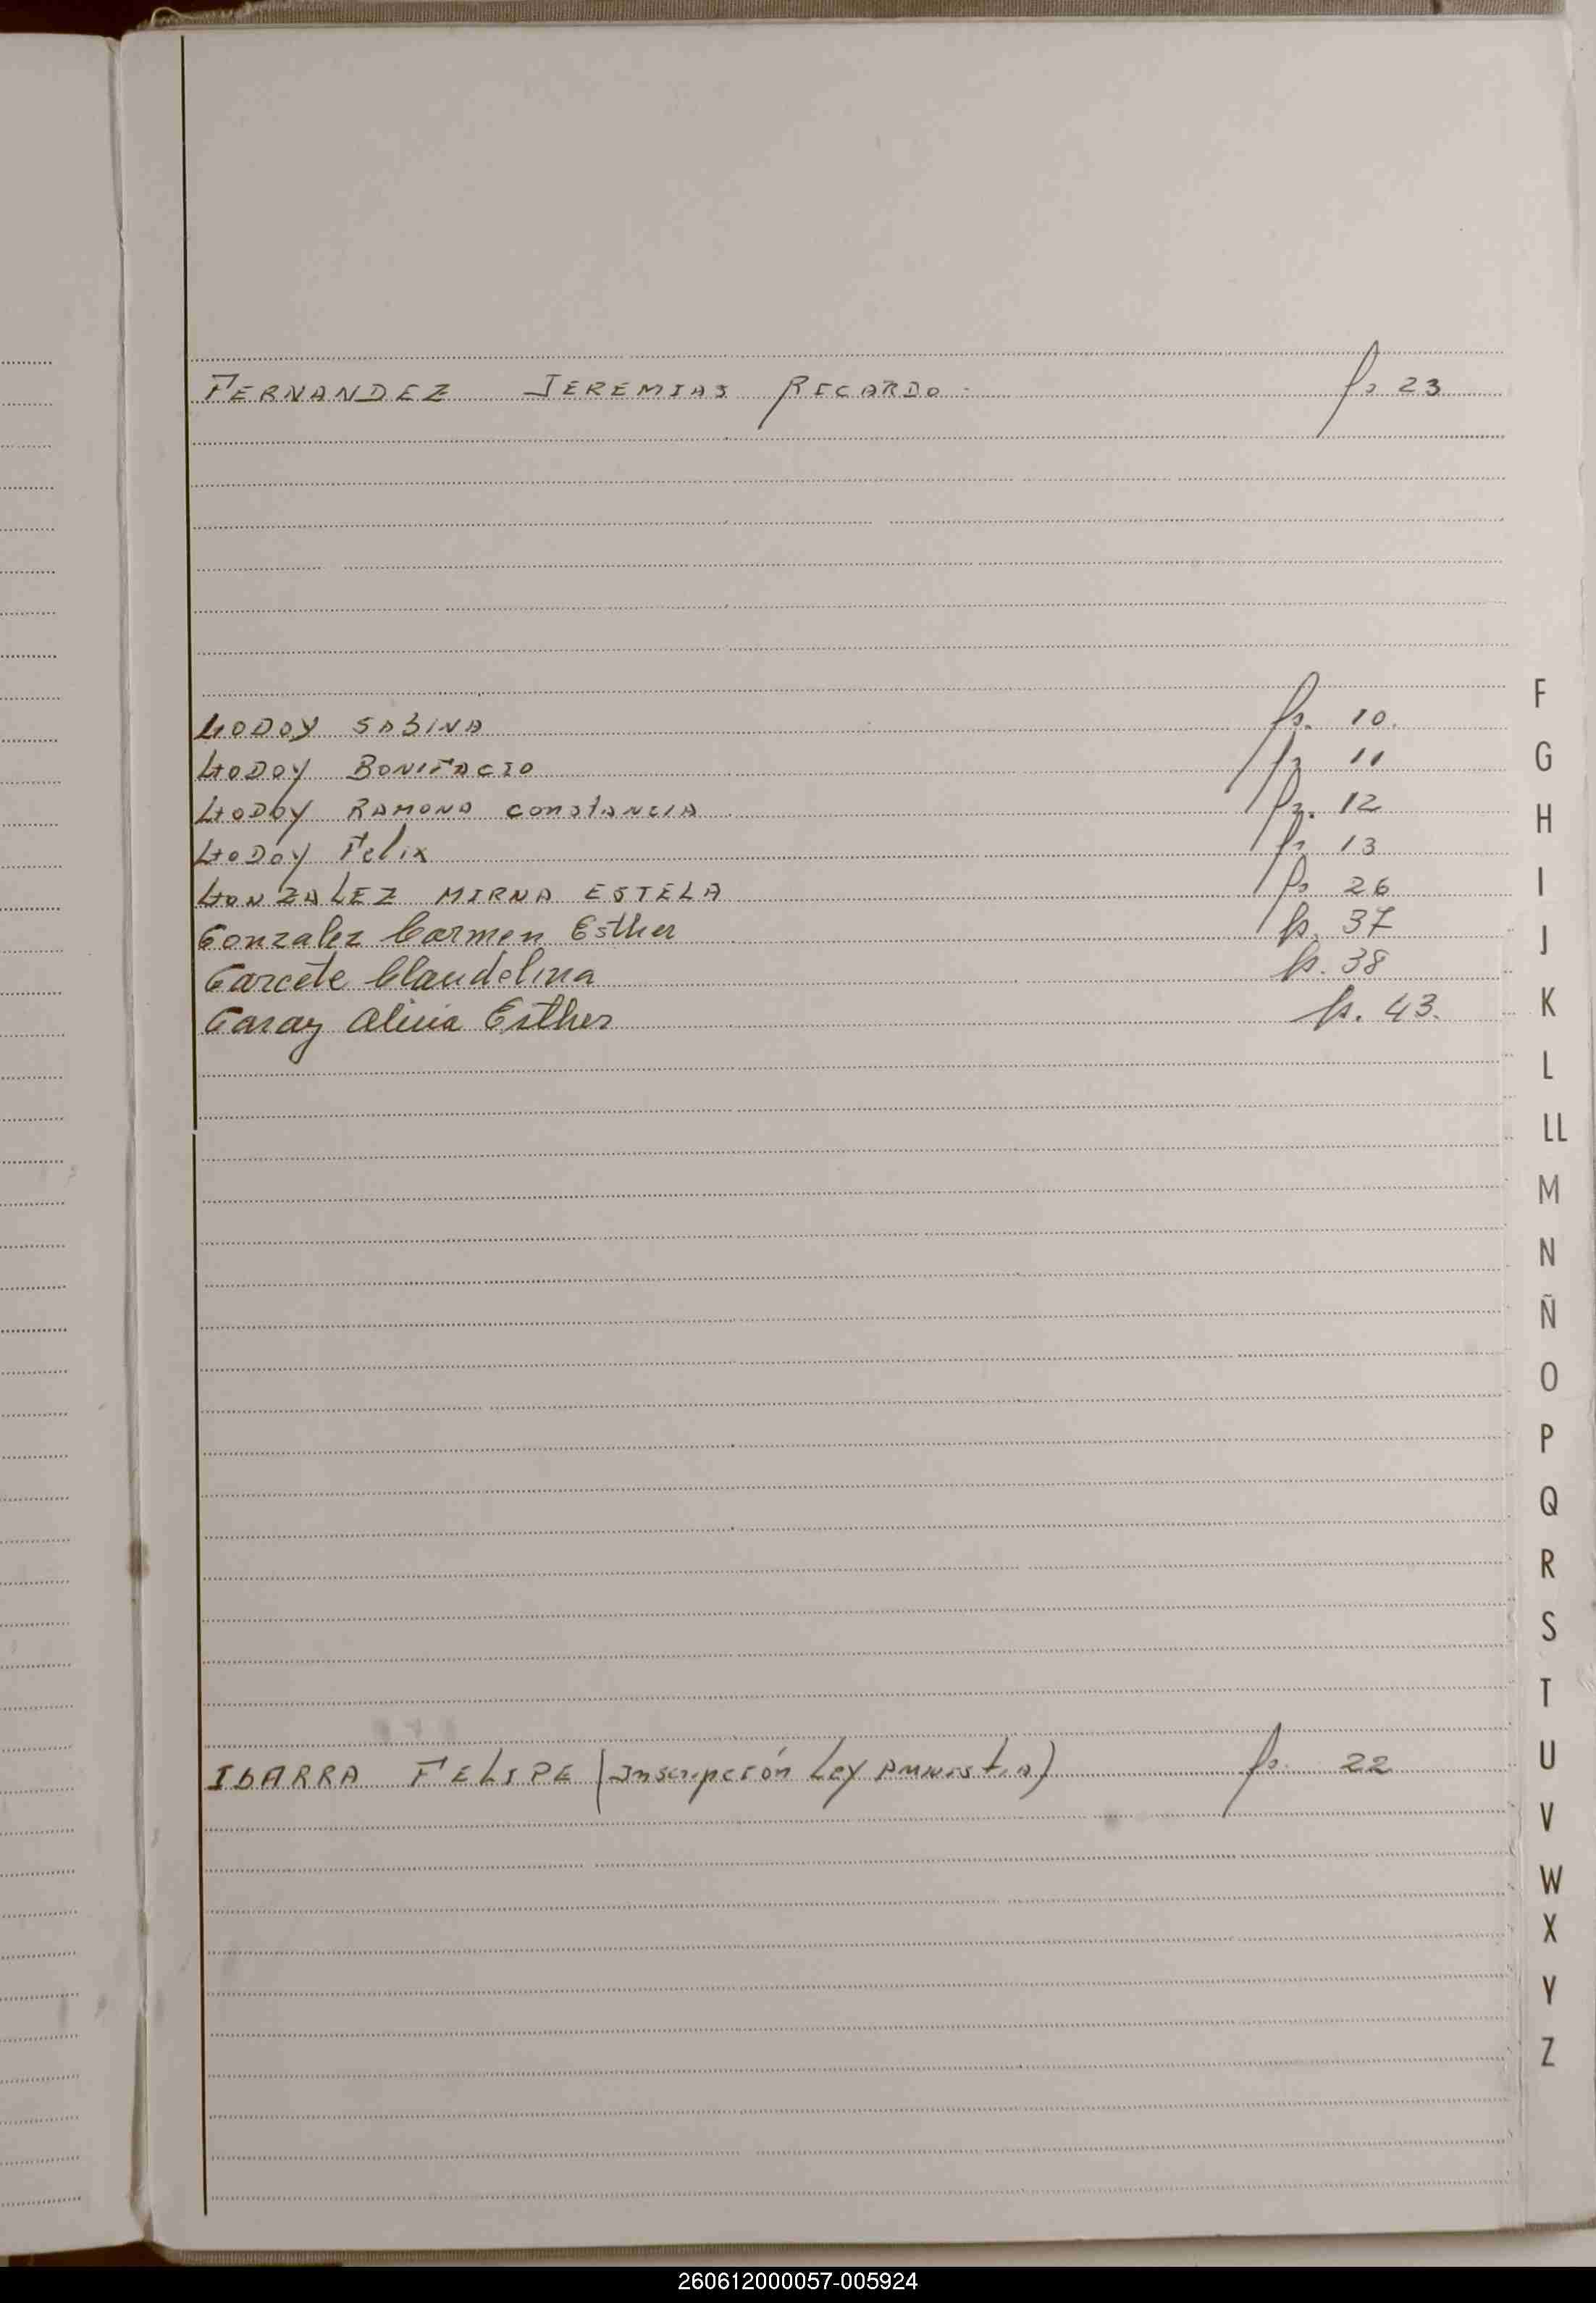 FERNANDEZ JEREMIAS RICARDO - fs 23
GODOY SABINA fs. 10.
GODOY BONIFACIO fs 11
GODOY RAMONA CONSTANCIA fs. 12
GODOY Felix fs 13
GONZALEZ MIRNA ESTELA fs 26
Gonzalez Carmen Esther fs. 37
Garcete Claudelina fs. 38
Garay Alicia Esther fs. 43.
IBARRA FELIPE (Inscripción Ley AMNISTIA) fs. 22
F
G
H
I
J
K
L
LL
M
N
Ñ
O
P
Q
R
S
T
U
V
W
X
Y
Z
260612000057-005924